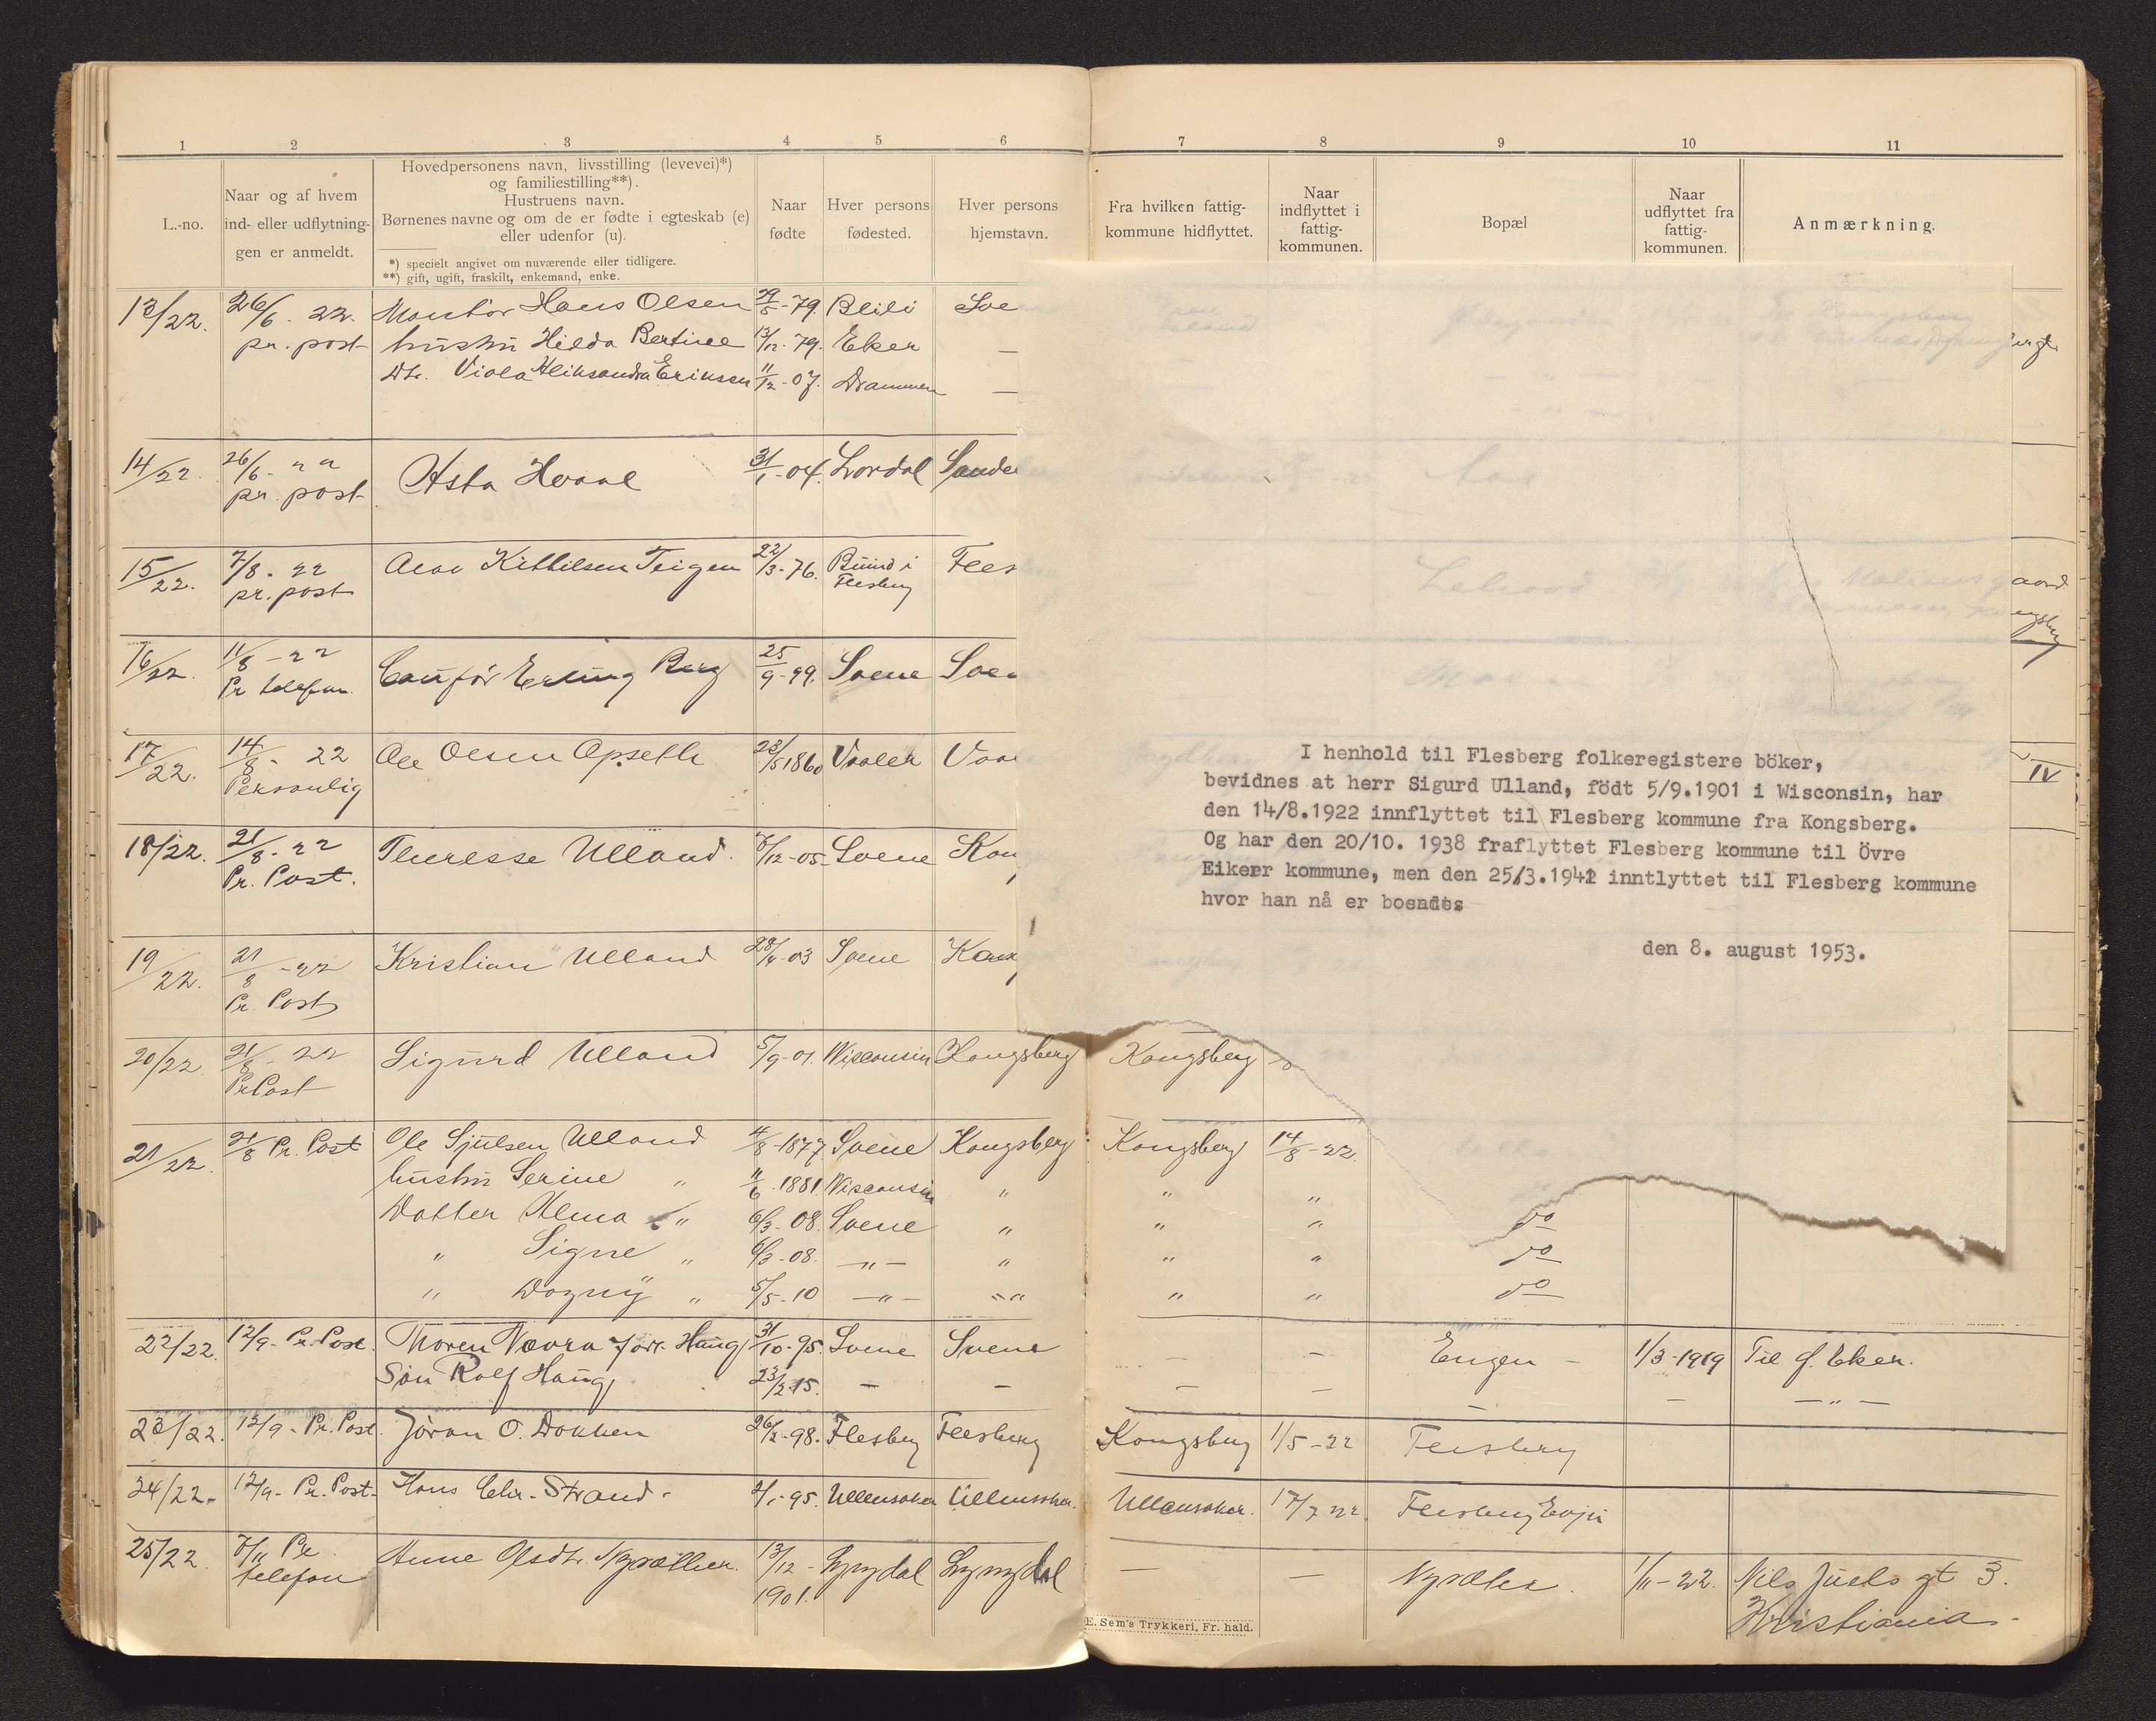 1 2 3 4 5 6 7 8 9 10 11
L.-no.
Naar og af hvem
ind- eller udflytnin-
gen er anmeldt.
Hovedpersonens navn, livsstilling (levevei)*)
og familiestilling**).
Hustruens navn.
Børnenes navne og om de er fødte i egteskab (e)
eller udenfor (u).
*) specielt angivet om nuværende eller tidligere.
**) gift, ugift, fraskilt, enkemand, enke.
Naar
fødte
Hver persons
fødested.
Hver persons
hjemstavn.
Fra hvilken fattig-
kommune hidflyttet.
Naar
indflyttet i
fattig-
kommunen.
Bopæl
Naar
udflyttet fra
fattig-
kommunen.
Anmærkning.
13/22. 26/6 - 22. Montør Hans Olsen 29/5-79. Sve
pr. post hustru Hilda Bertine 13/12-79. Eker —
Dtr. Viola Aleksandra Eriksen 11/12-07. Drammen —
14/22. 26/6- pr. post Asta Hvaal 31/1-04. Lardal Sande
15/22. 7/8 - 22 Kittilsen Teigen 22/3-76. i Fles
pr. post Flesberg
16/22. 11/8 - 22 Erling Berg 25/9-99. Svene Sven
Pr telefon.
17/22. 14/8 - 22 Ole Olsen Opseth 23/5 1860 Vaaler Vaa
Personlig
18/22. 21/8 - 22 Theresse Ulland. 6/12-05 Svene Kon
Pr. Post.
19/22. 21/8 - 22 Kristian Ulland 28/4-03 Svene Kon
Pr. Post
20/22 21/8 - 22 Sigurd Ulland 5/9-01. Wisconsin Kongsberg Kongsberg
Pr Post
21/22. 21/8 Pr. Post Ole Sjulsen Ulland 4/8-1877 Svene Kongsberg Kongsberg 14/8-22.
hustru Serine " 11/6 1881. Wisconsin " " "
Datter Alma " 6/3-08. Svene " " " do
" Signe " 6/3-08. —"— " " " do
" Dagny " 5/5-10 —"— " " " do
22/22. 12/9- Pr. Post. Thoren Nævra før. Haug 31/10-95. Svene Svene — — Engen — 1/3-1919 Til Ø. Eker.
Søn Rolf Haug 23/2 15. — — — — — — —"—
23/22. 12/9- Pr. Post. Jøran O. Dokken 26/2-98. Flesberg Flesberg Kongsberg 1/5-22 Flesberg
24/22. 12/9- Pr. Post- Hans Chr. Strand. 2/1-95. Ullensaker Ullensaker. Ullensaker. 17/7 22. Flesberg Evju
25/22. 7/11 Pr Anne Olsdtr. Nysæther. 13/12- Lyngdal Lyngdal — — Nysæter. 1/11-22. Nils Juels gt 3.
telefon 1901. Kristiania.
I henhold til Flesberg folkeregistere böker,
bevidnes at herr Sigurd Ulland, födt 5/9.1901 i Wisconsin, har
den 14/8.1922 innflyttet til Flesberg kommune fra Kongsberg.
Og har den 20/10. 1938 fraflyttet Flesberg kommune til Övre
Eikeer kommune, men den 25/3.1942 inntlyttet til Flesberg kommune
hvor han nå er
den 8. august 1953.
IV
E. Sem's Trykkeri, Fr. hald.